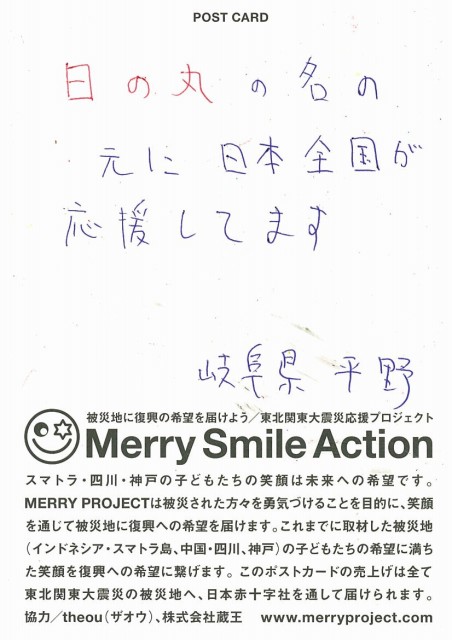 POST CARD
日の丸の名の
元に日本全国が
応援してます
岐阜県 平野
被災地に復興の希望を届けよう／東北関東大震災応援プロジェクト
Merry Smile Action
スマトラ・四川・神戸の子どもたちの笑顔は未来への希望です。
MERRY PROJECTは被災された方々を勇気づけることを目的に、笑顔
を通じて被災地に復興への希望を届けます。これまでに取材した被災地
（インドネシア・スマトラ島、中国・四川、神戸）の子どもたちの希望に満ち
た笑顔を復興への希望に繋げます。このポストカードの売上げは全て
東北関東大震災の被災地へ、日本赤十字社を通して届けられます。
協力／theou（ザオウ）、株式会社蔵王　www.merryproject.com